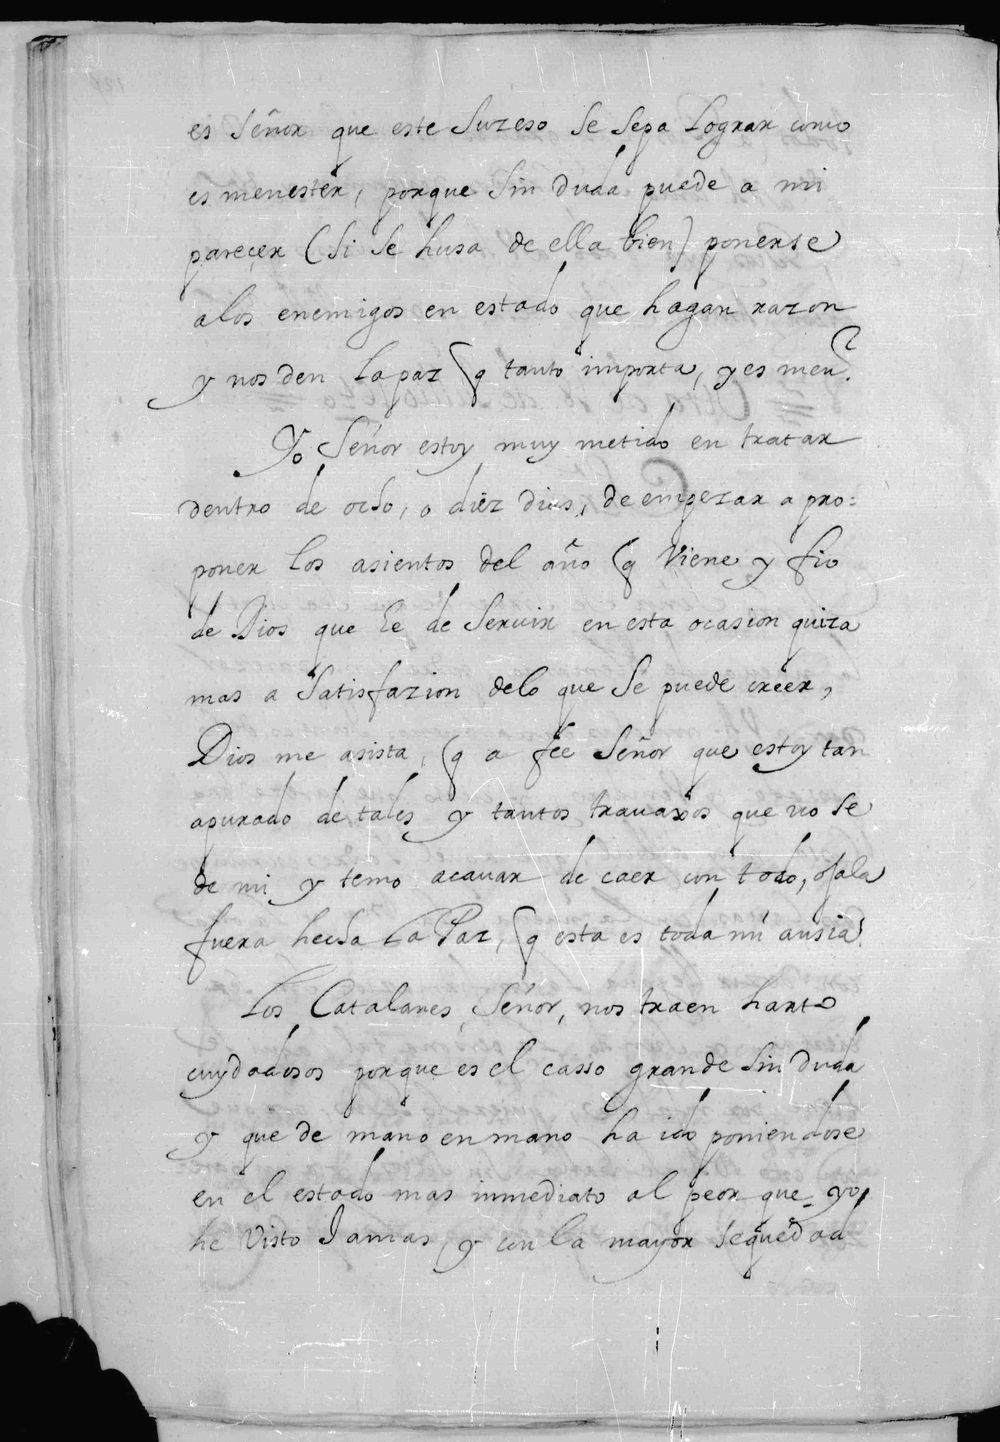 es Señor que este Suzeso se sepa Lograr como
es menester, porque sin duda puede a mi
pareçer (si se husa de ella bien) ponerse
a los enemigos en estado que hagan razon
y nos den la paz q tanto importa, y es men.r
Yo Señor estoy muy metido en tratar
dentro de ocho, o diez dias, de empezar a pro:
poner los asientos del año q viene y fio
de Dios que he de Servir en esta ocasion quiza
mas a Satisfazion de lo que se puede creer,
Dios me asista, q a fee Señor que estoy tan
apurado de tales y tantos travaxos que no se
de mi y temo acavar de caer con todo, ojala
fuera hecha la Paz, q esta es toda mi ansia.
Los Catalanes, Señor, nos traen harto
cuydadosos porque es el casso grande sin duda
y que de mano en mano ha ido poniendose
en el estado mas inmediato al peor que yo
he visto Jamas, y con la mayor sequedad